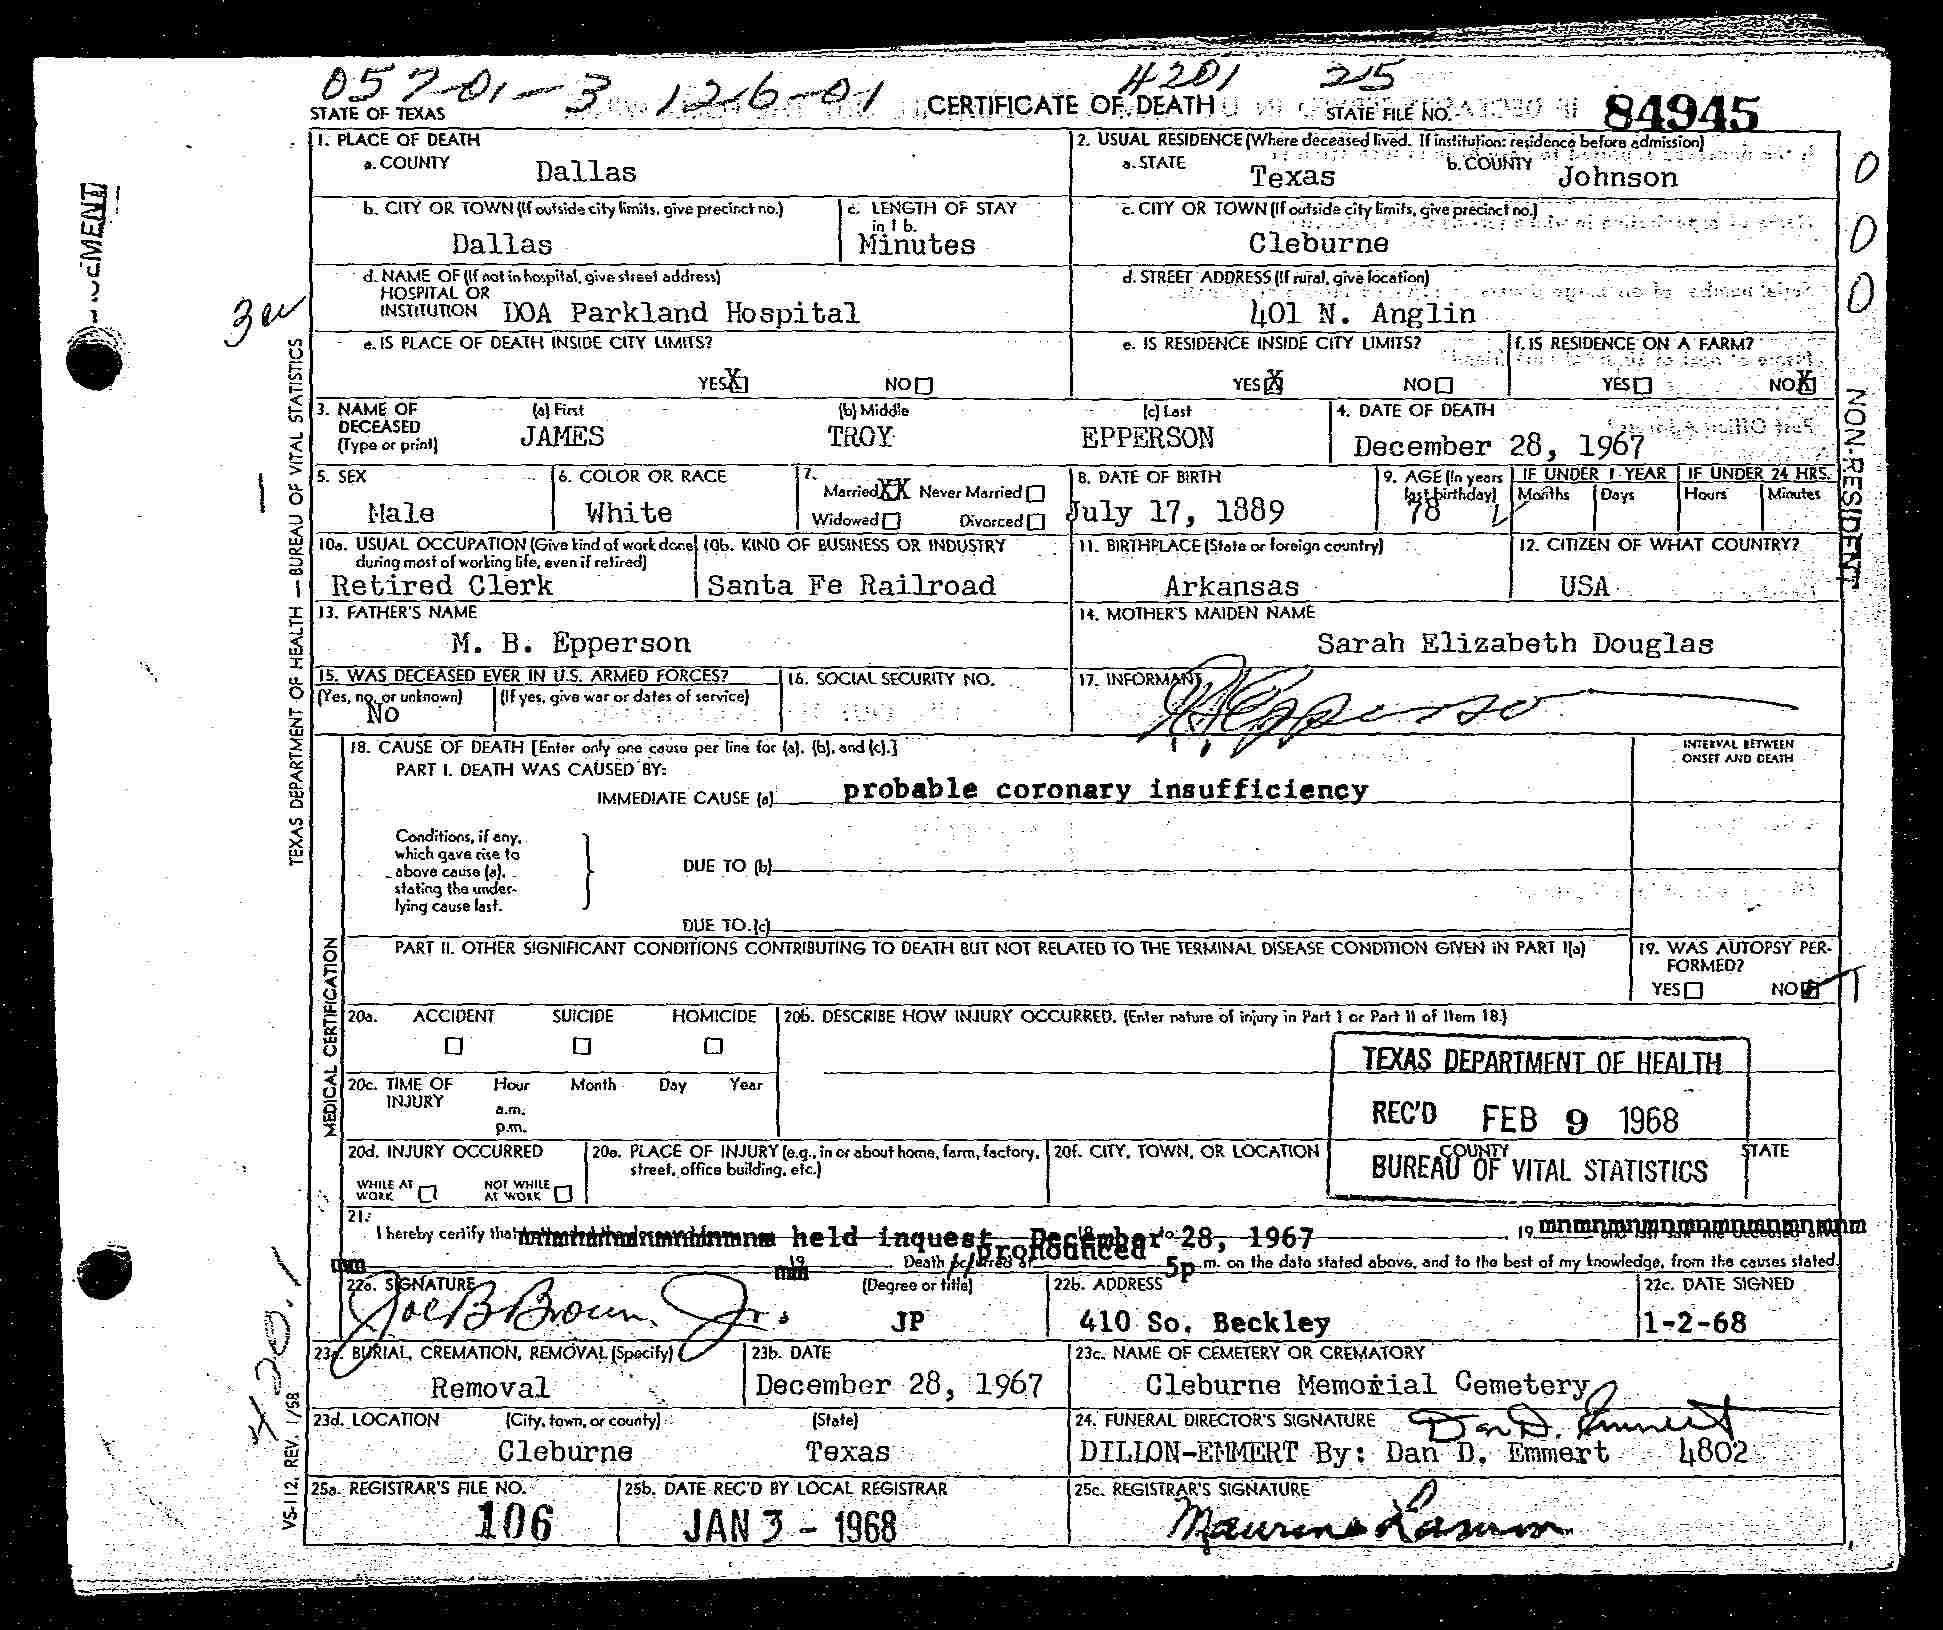 05701-3 126-01 4201 215
STATE OF TEXAS CERTIFICATE OF DEATH STATE FILE NO. 84945
1. PLACE OF DEATH
a. COUNTY Dallas
2. USUAL RESIDENCE (Where deceased lived. If institution: residence before admission)
a. STATE Texas b. COUNTY Johnson
b. CITY OR TOWN (If outside city limits, give precinct no.) Dallas
c. LENGTH OF STAY in 1 b. Minutes
c. CITY OR TOWN (If outside city limits, give precinct no.) Cleburne
d. NAME OF (If not in hospital, give street address) HOSPITAL OR INSTITUTION DOA Parkland Hospital
d. STREET ADDRESS (If rural, give location) 401 N. Anglin
e. IS PLACE OF DEATH INSIDE CITY LIMITS? YES X NO
e. IS RESIDENCE INSIDE CITY LIMITS? YES X NO
f. IS RESIDENCE ON A FARM? YES NO X
3. NAME OF DECEASED (Type or print)
(a) First JAMES (b) Middle TROY (c) Last EPPERSON
4. DATE OF DEATH December 28, 1967
5. SEX Male
6. COLOR OR RACE White
7. Married XX Never Married
Widowed Divorced
8. DATE OF BIRTH July 17, 1889
9. AGE (In years last birthday) 78
IF UNDER 1 YEAR Months Days
IF UNDER 24 HRS. Hours Minutes
10a. USUAL OCCUPATION (Give kind of work done during most of working life, even if retired) Retired Clerk
10b. KIND OF BUSINESS OR INDUSTRY Santa Fe Railroad
11. BIRTHPLACE (State or foreign country) Arkansas
12. CITIZEN OF WHAT COUNTRY? USA
13. FATHER'S NAME M. B. Epperson
14. MOTHER'S MAIDEN NAME Sarah Elizabeth Douglas
15. WAS DECEASED EVER IN U.S. ARMED FORCES?
(Yes, no, or unknown) No (If yes, give war or dates of service)
16. SOCIAL SECURITY NO.
17. INFORMANT Epperson
18. CAUSE OF DEATH [Enter only one cause per line for (a), (b), and (c).]
INTERVAL BETWEEN ONSET AND DEATH
PART I. DEATH WAS CAUSED BY:
IMMEDIATE CAUSE (a) probable coronary insufficiency
Conditions, if any, which gave rise to above cause (a), stating the underlying cause last.
DUE TO (b)
DUE TO (c)
PART II. OTHER SIGNIFICANT CONDITIONS CONTRIBUTING TO DEATH BUT NOT RELATED TO THE TERMINAL DISEASE CONDITION GIVEN IN PART I(a)
19. WAS AUTOPSY PERFORMED? YES NO
20a. ACCIDENT SUICIDE HOMICIDE
20b. DESCRIBE HOW INJURY OCCURRED. (Enter nature of injury in Part I or Part II of Item 18.)
20c. TIME OF INJURY Hour Month Day Year
a.m.
p.m.
20d. INJURY OCCURRED
WHILE AT WORK NOT WHILE AT WORK
20e. PLACE OF INJURY (e.g., in or about home, farm, factory, street, office building, etc.)
20f. CITY, TOWN, OR LOCATION COUNTY STATE
TEXAS DEPARTMENT OF HEALTH
REC'D FEB 9 1968
BUREAU OF VITAL STATISTICS
21. I hereby certify that held inquest December 28, 1967
Death pronounced 5p m. on the date stated above, and to the best of my knowledge, from the causes stated.
22a. SIGNATURE Joe B Brown, Jr. (Degree or title) JP
22b. ADDRESS 410 So. Beckley
22c. DATE SIGNED 1-2-68
23a. BURIAL, CREMATION, REMOVAL (Specify) Removal
23b. DATE December 28, 1967
23c. NAME OF CEMETERY OR CREMATORY Cleburne Memorial Cemetery
23d. LOCATION (City, town, or county) Cleburne (State) Texas
24. FUNERAL DIRECTOR'S SIGNATURE Dan D. Emmert
DILLON-EMMERT By: Dan D. Emmert 4802
25a. REGISTRAR'S FILE NO. 106
25b. DATE REC'D BY LOCAL REGISTRAR JAN 3 - 1968
25c. REGISTRAR'S SIGNATURE
TEXAS DEPARTMENT OF HEALTH — BUREAU OF VITAL STATISTICS
MEDICAL CERTIFICATION
VS-112, REV. 1/58
420.1
NON-RESIDENT
0 0 0